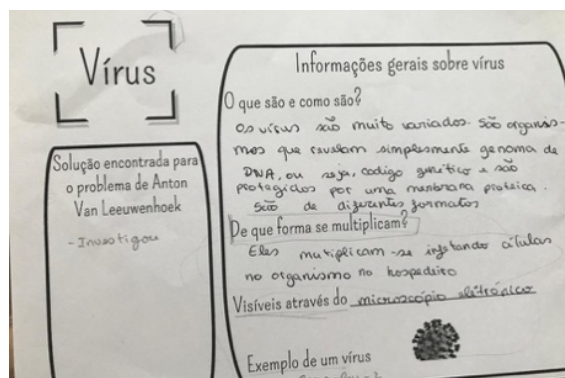 Vírus
Solução encontrada para
o problema de Anton
Van Leeuwenhoek
- Investigou
Informações gerais sobre vírus
O que são e como são?
Os vírus são muito variados. São organis-
mos que revelam simplesmente genoma de
DNA, ou seja, codigo genético e são
protegidos por uma menbrana proteica.
São de diferentes formatos
De que forma se multiplicam?
Eles mutiplicam-se injetando células
no organismo no hospedeiro
Visíveis através do microscópio eletrónico
Exemplo de um vírus